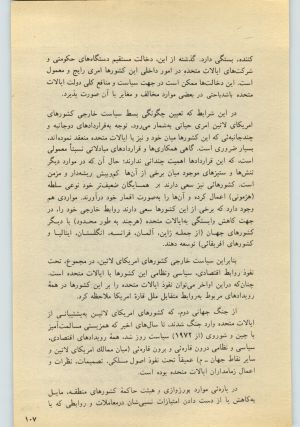 کننده، بستگی دارد. گذشته از این، دخالت مستقیم دستگاههای حکومتی و
شرکتهای ایالات متحده در امور داخلی این کشورها امری رایج و معمول
است. این دخالتها ممکن است در جهت سیاست و منافع کلی دولت ایالات
متحده باشد یا حتی در بعضی موارد مخالف و مغایر با آن صورت پذیرد.
در این شرایط که تعیین چگونگی بسط سیاست خارجی کشورهای
امریکای لاتین امری حیاتی به‌شمار می‌رود، توجه به قراردادهای دوجانبه و
چندجانبه‌ئی که این کشورها میان خود و نیز با ایالات متحده منعقد نموده‌اند،
بسیار ضروری است. گاهی همکاریها و قراردادهای مبادلاتی نسبتاً معمولی
است، که این قراردادها اهمیت چندانی ندارند؛ حال آن که در موارد دیگر
تنش‌ها و ستیزهای موجود میان برخی از آن‌ها کم‌وبیش ریشه‌دار و مزمن
است. کشورهائی نیز سعی دارند بر همسایگان ضعیف‌تر خود نوعی سلطه
(هژمونی) اعمال کرده و آن‌ها را به‌صورت اقمار خود درآورند. مواردی هم
وجود دارد که برخی از این کشورها سعی دارند روابط خارجی خود را، در
جهت کاهش وابستگی به‌ایالات متحده (هرچند به طور محدود) با دیگر
کشورهای جهان (از جمله ژاپن، آلمان، فرانسه، انگلستان، ایتالیا و
کشورهای افریقائی) توسعه دهند.
بنابراین سیاست خارجی کشورهای امریکای لاتین، در مجموع، تحت
نفوذ روابط اقتصادی، سیاسی و نظامی این کشورها با ایالات متحده است.
چنان‌که در این اواخر می‌توان نفوذ ایالات متحده را بر این کشورها در همهٔ
رویدادهای مربوط به‌روابط متقابل ملل قارهٔ امریکا ملاحظه کرد.
از جنگ جهانی دوم، که کشورهای امریکای لاتین به‌پشتیبانی از
ایالات متحده وارد جنگ شدند، تا سال‌های اخیر که همزیستی مسالمت‌آمیز
با چین و شوروی (از ۱۹۷۲) سیاست روز شد، همهٔ رویدادهای اقتصادی،
سیاسی و نظامی درون قاره‌ئی و برون قاره‌ئی (میان ممالک امریکای لاتین و
سایر نقاط جهان - م) عمیقاً تحت نفوذ اصول مسلکی، تصمیمات، نظرات و
اعمال زمامداران ایالات متحده بوده است
در پاره‌ئی موارد بورژوازی و هیئت حاکمهٔ کشورهای منطقه، مایل
به‌کاهش یا از دست دادن امتیازات نسبی‌شان در معاملات و روابطی که با
۱۰۷